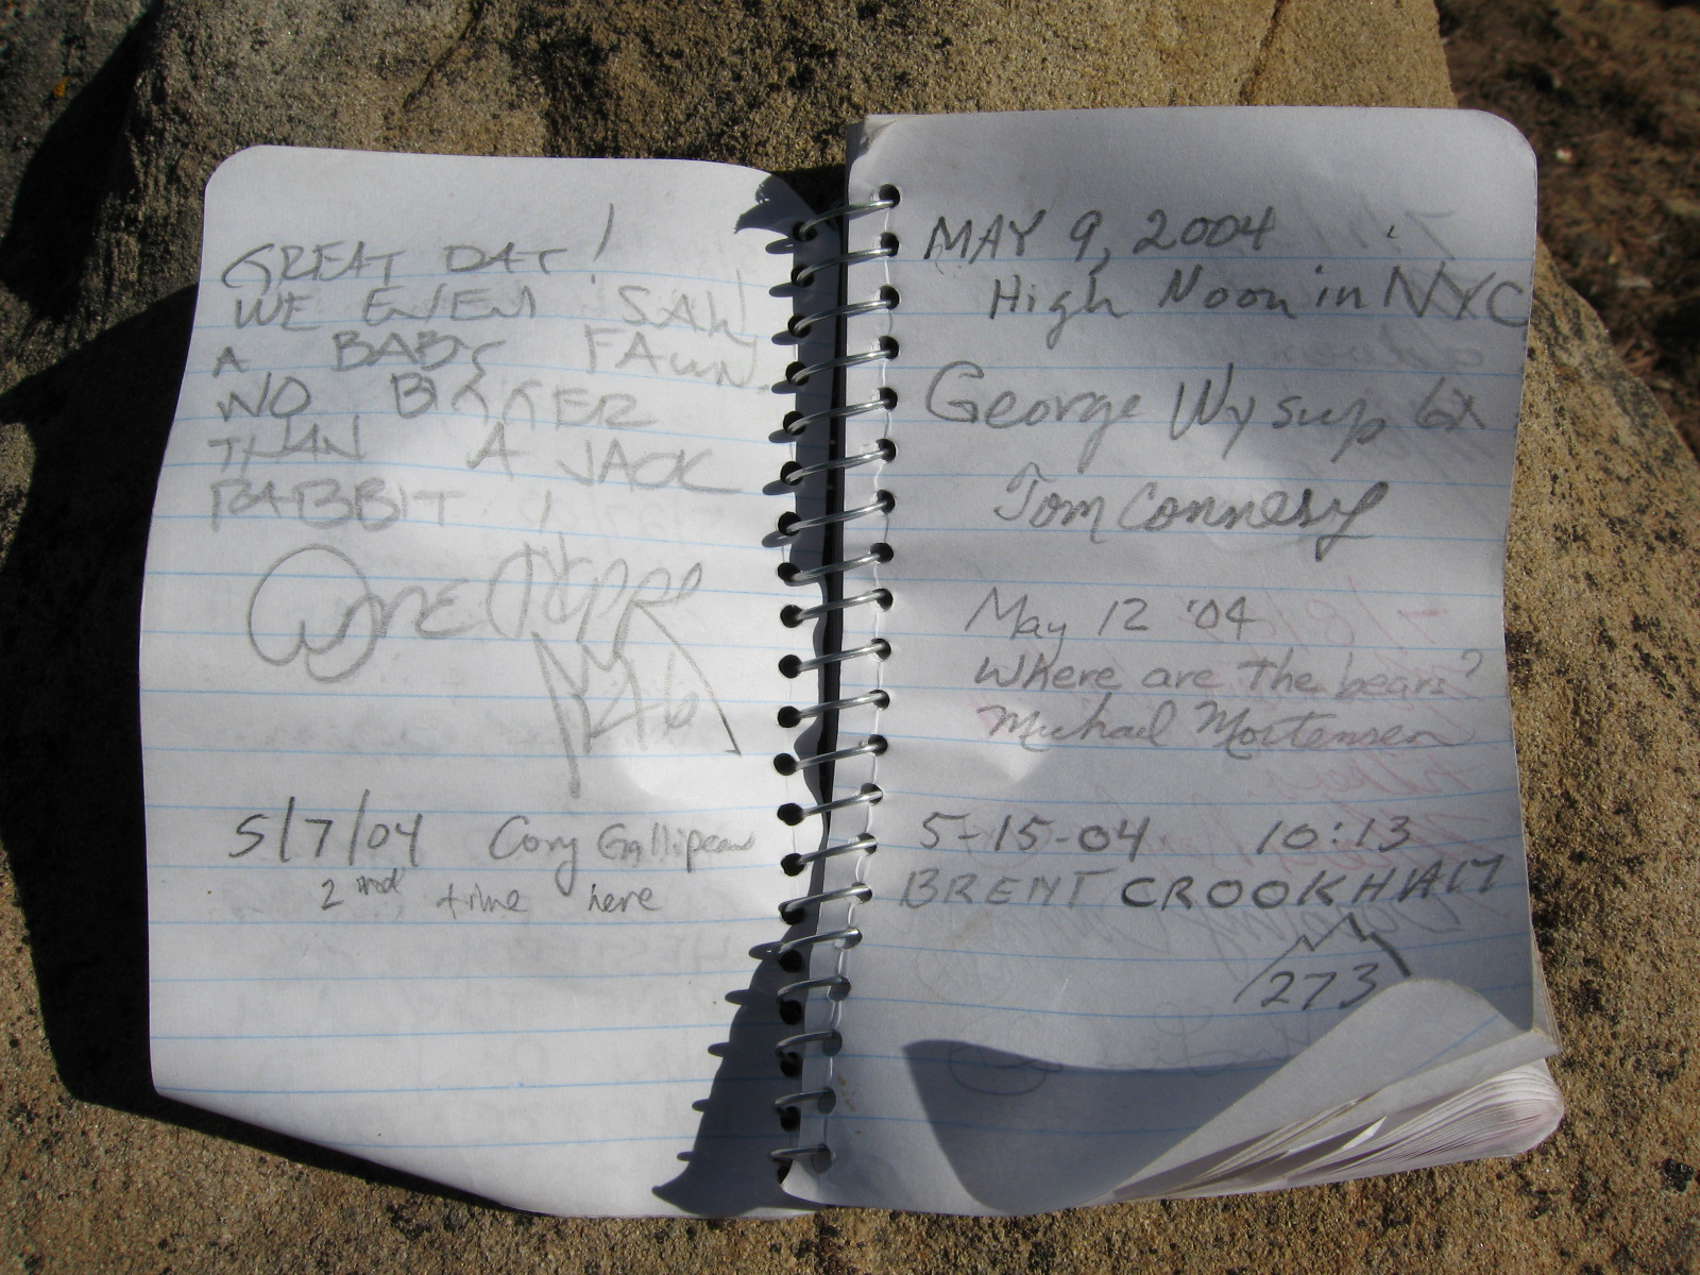 GREAT DAY!
WE EVEN SAW
A BABY FAWN
NO BIGGER
THAN A JACK
RABBIT!
5/7/04 Cory Gallipeau
2nd time here
MAY 9, 2004
High Noon in NYC
George Wysup 6x
Tom Connery
May 12 '04
Where are the bears?
Michael Mortensen
5-15-04 10:13
BRENT CROOKHAM
273